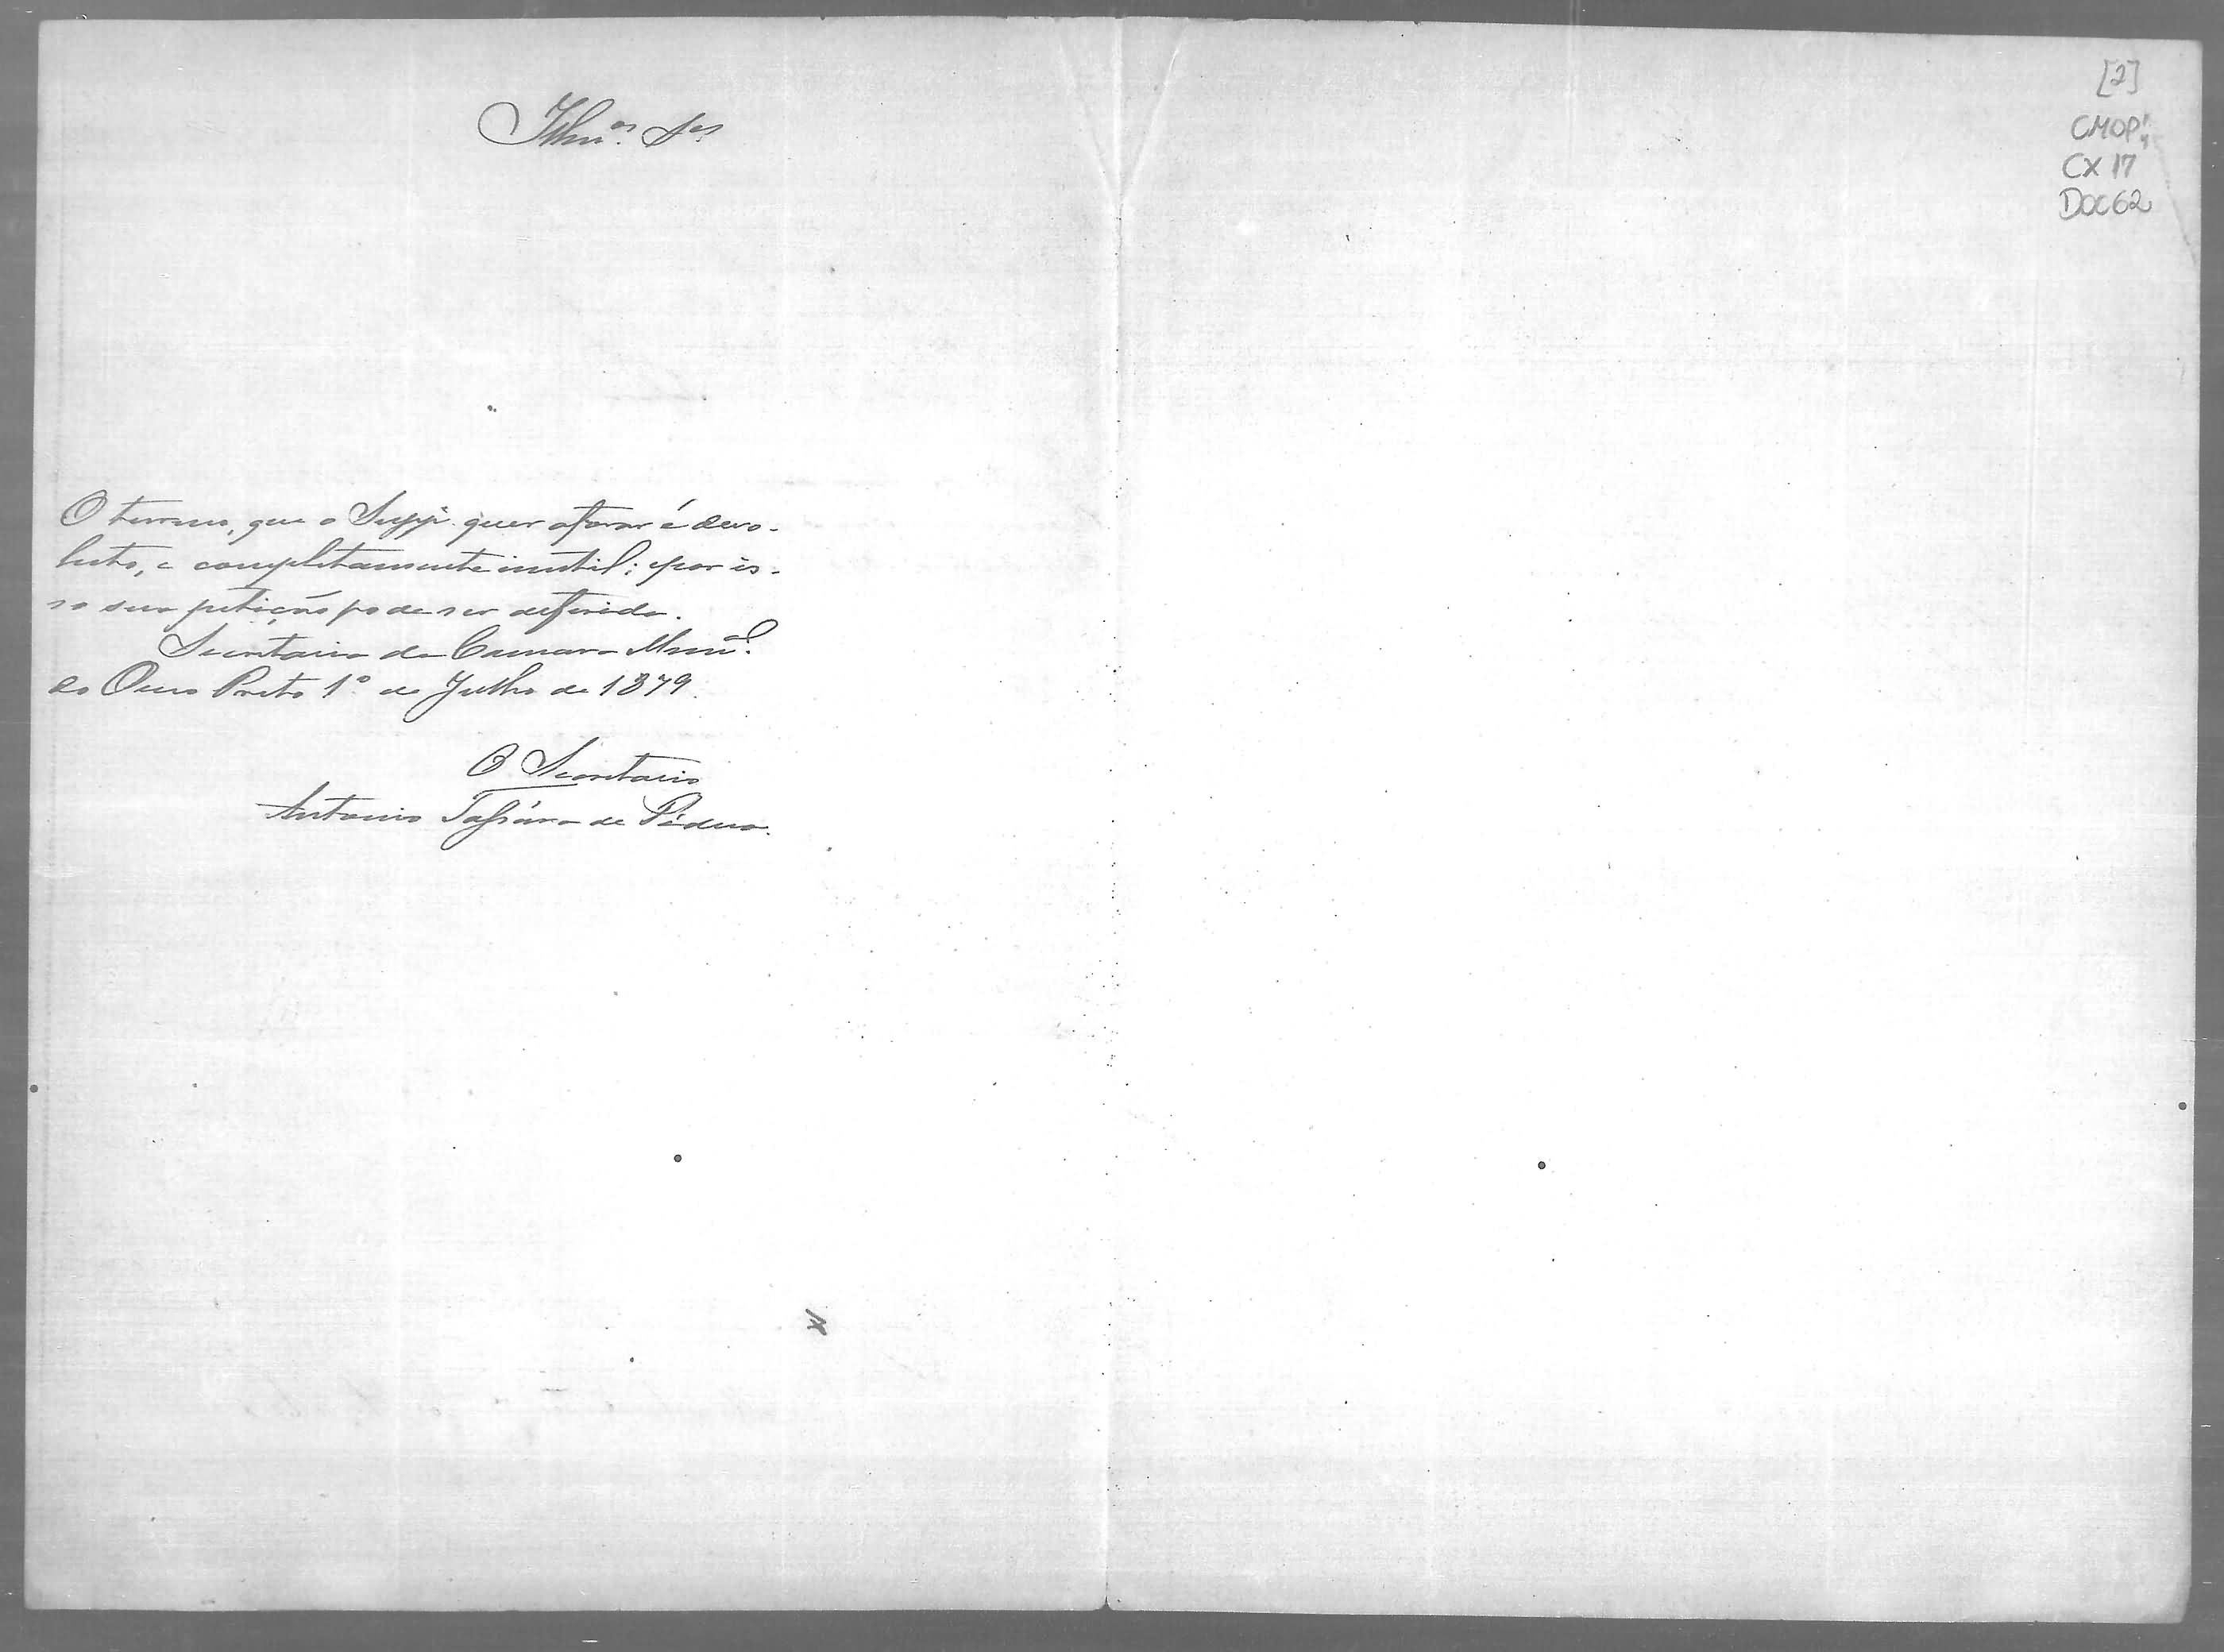 Illm.os S.es
O terreno, que o Supp.e quer aforar é devo-
luto, e completamente inutil; por is-
so sua petição pode ser deferida.
Secretaria da Camara Mun.al
do Ouro Preto 1º de Julho de 1879.
O Secretario
Antonio Tassára de Pádua.
[2]
CMOP
CX 17
DOC 62